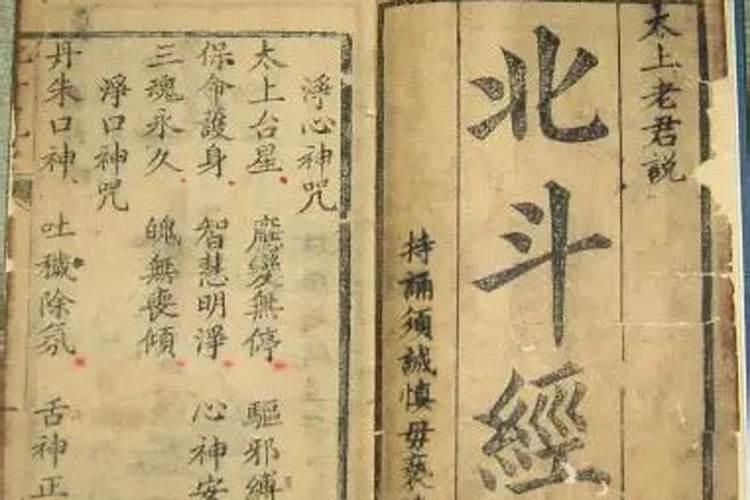 太上老君説
北斗經
持誦須誠慎毋褻
淨心神咒
太上台星 應變無停 驅邪縛
保命護身 智慧明淨 心神安
三魂永久 魄無喪傾
淨口神咒
丹朱口神 吐穢除氛 舌神正